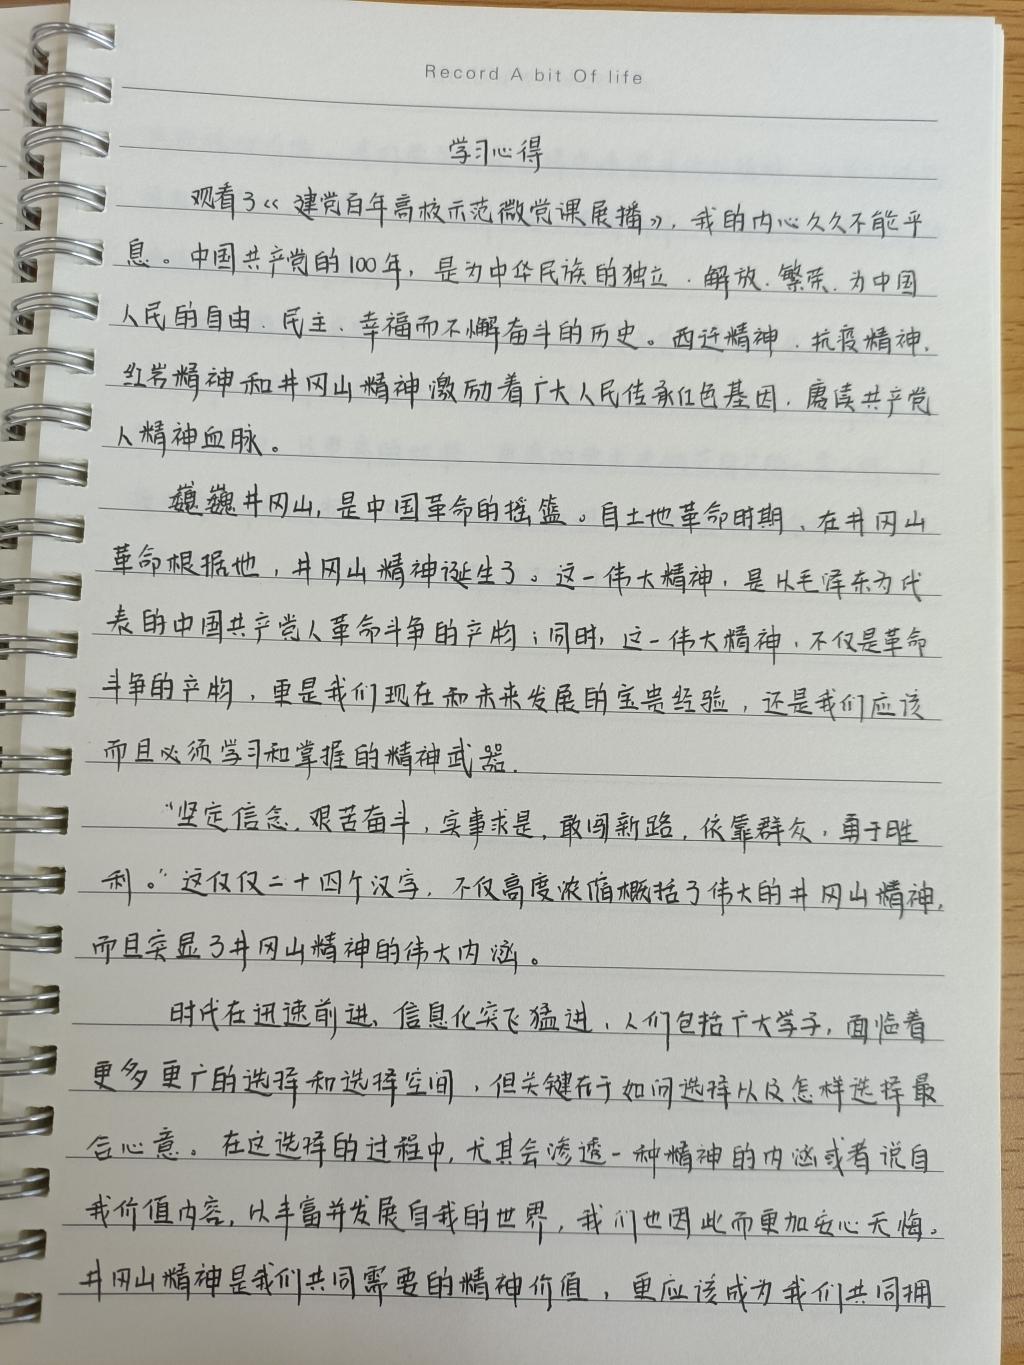 Record A bit Of life
学习心得
观看了《建党百年高校示范微党课展播》，我的内心久久不能平
息。中国共产党的100年，是为中华民族的独立、解放、繁荣、为中国
人民的自由、民主、幸福而不懈奋斗的历史。西迁精神、抗疫精神、
红岩精神和井冈山精神激励着广大人民传承红色基因、赓续共产党
人精神血脉。
巍巍井冈山，是中国革命的摇篮。自土地革命时期，在井冈山
革命根据地，井冈山精神诞生了。这一伟大精神，是以毛泽东为代
表的中国共产党人革命斗争的产物；同时，这一伟大精神，不仅是革命
斗争的产物，更是我们现在和未来发展的宝贵经验，还是我们应该
而且必须学习和掌握的精神武器.
“坚定信念、艰苦奋斗，实事求是、敢闯新路，依靠群众、勇于胜
利。”这仅仅二十四个汉字，不仅高度浓缩概括了伟大的井冈山精神，
而且突显了井冈山精神的伟大内涵。
时代在迅速前进、信息化突飞猛进，人们包括广大学子，面临着
更多更广的选择和选择空间，但关键在于如何选择以及怎样选择最
合心意。在这选择的过程中，尤其会渗透一种精神的内涵或者说自
我价值内容，以丰富并发展自我的世界，我们也因此而更加安心无悔。
井冈山精神是我们共同需要的精神价值，更应该成为我们共同拥